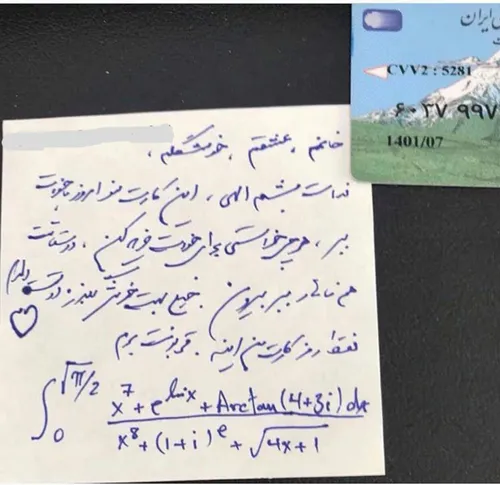 ایران
CVV2 : 5281
۶۰۳۷ ۹۹۷
1401/07
خانمم ، عشقم ، خوشگلم ،
فدات بشم الهی ، این کارت منو امروز با خودت
ببر ، هرچی خواستی برای خودت خرید کن ، دوستاتت
هم ناهار ببر بیرون . خیلی بهت خوش بگذره دوست دارم
فقط رمز کارت من اینه . قربونت برم
∫₀^(√π/2) (x⁷ + e^(ln x) + Arctan(4+3i) dx) / (x⁸ + (1+i)^e + √(4x+1))